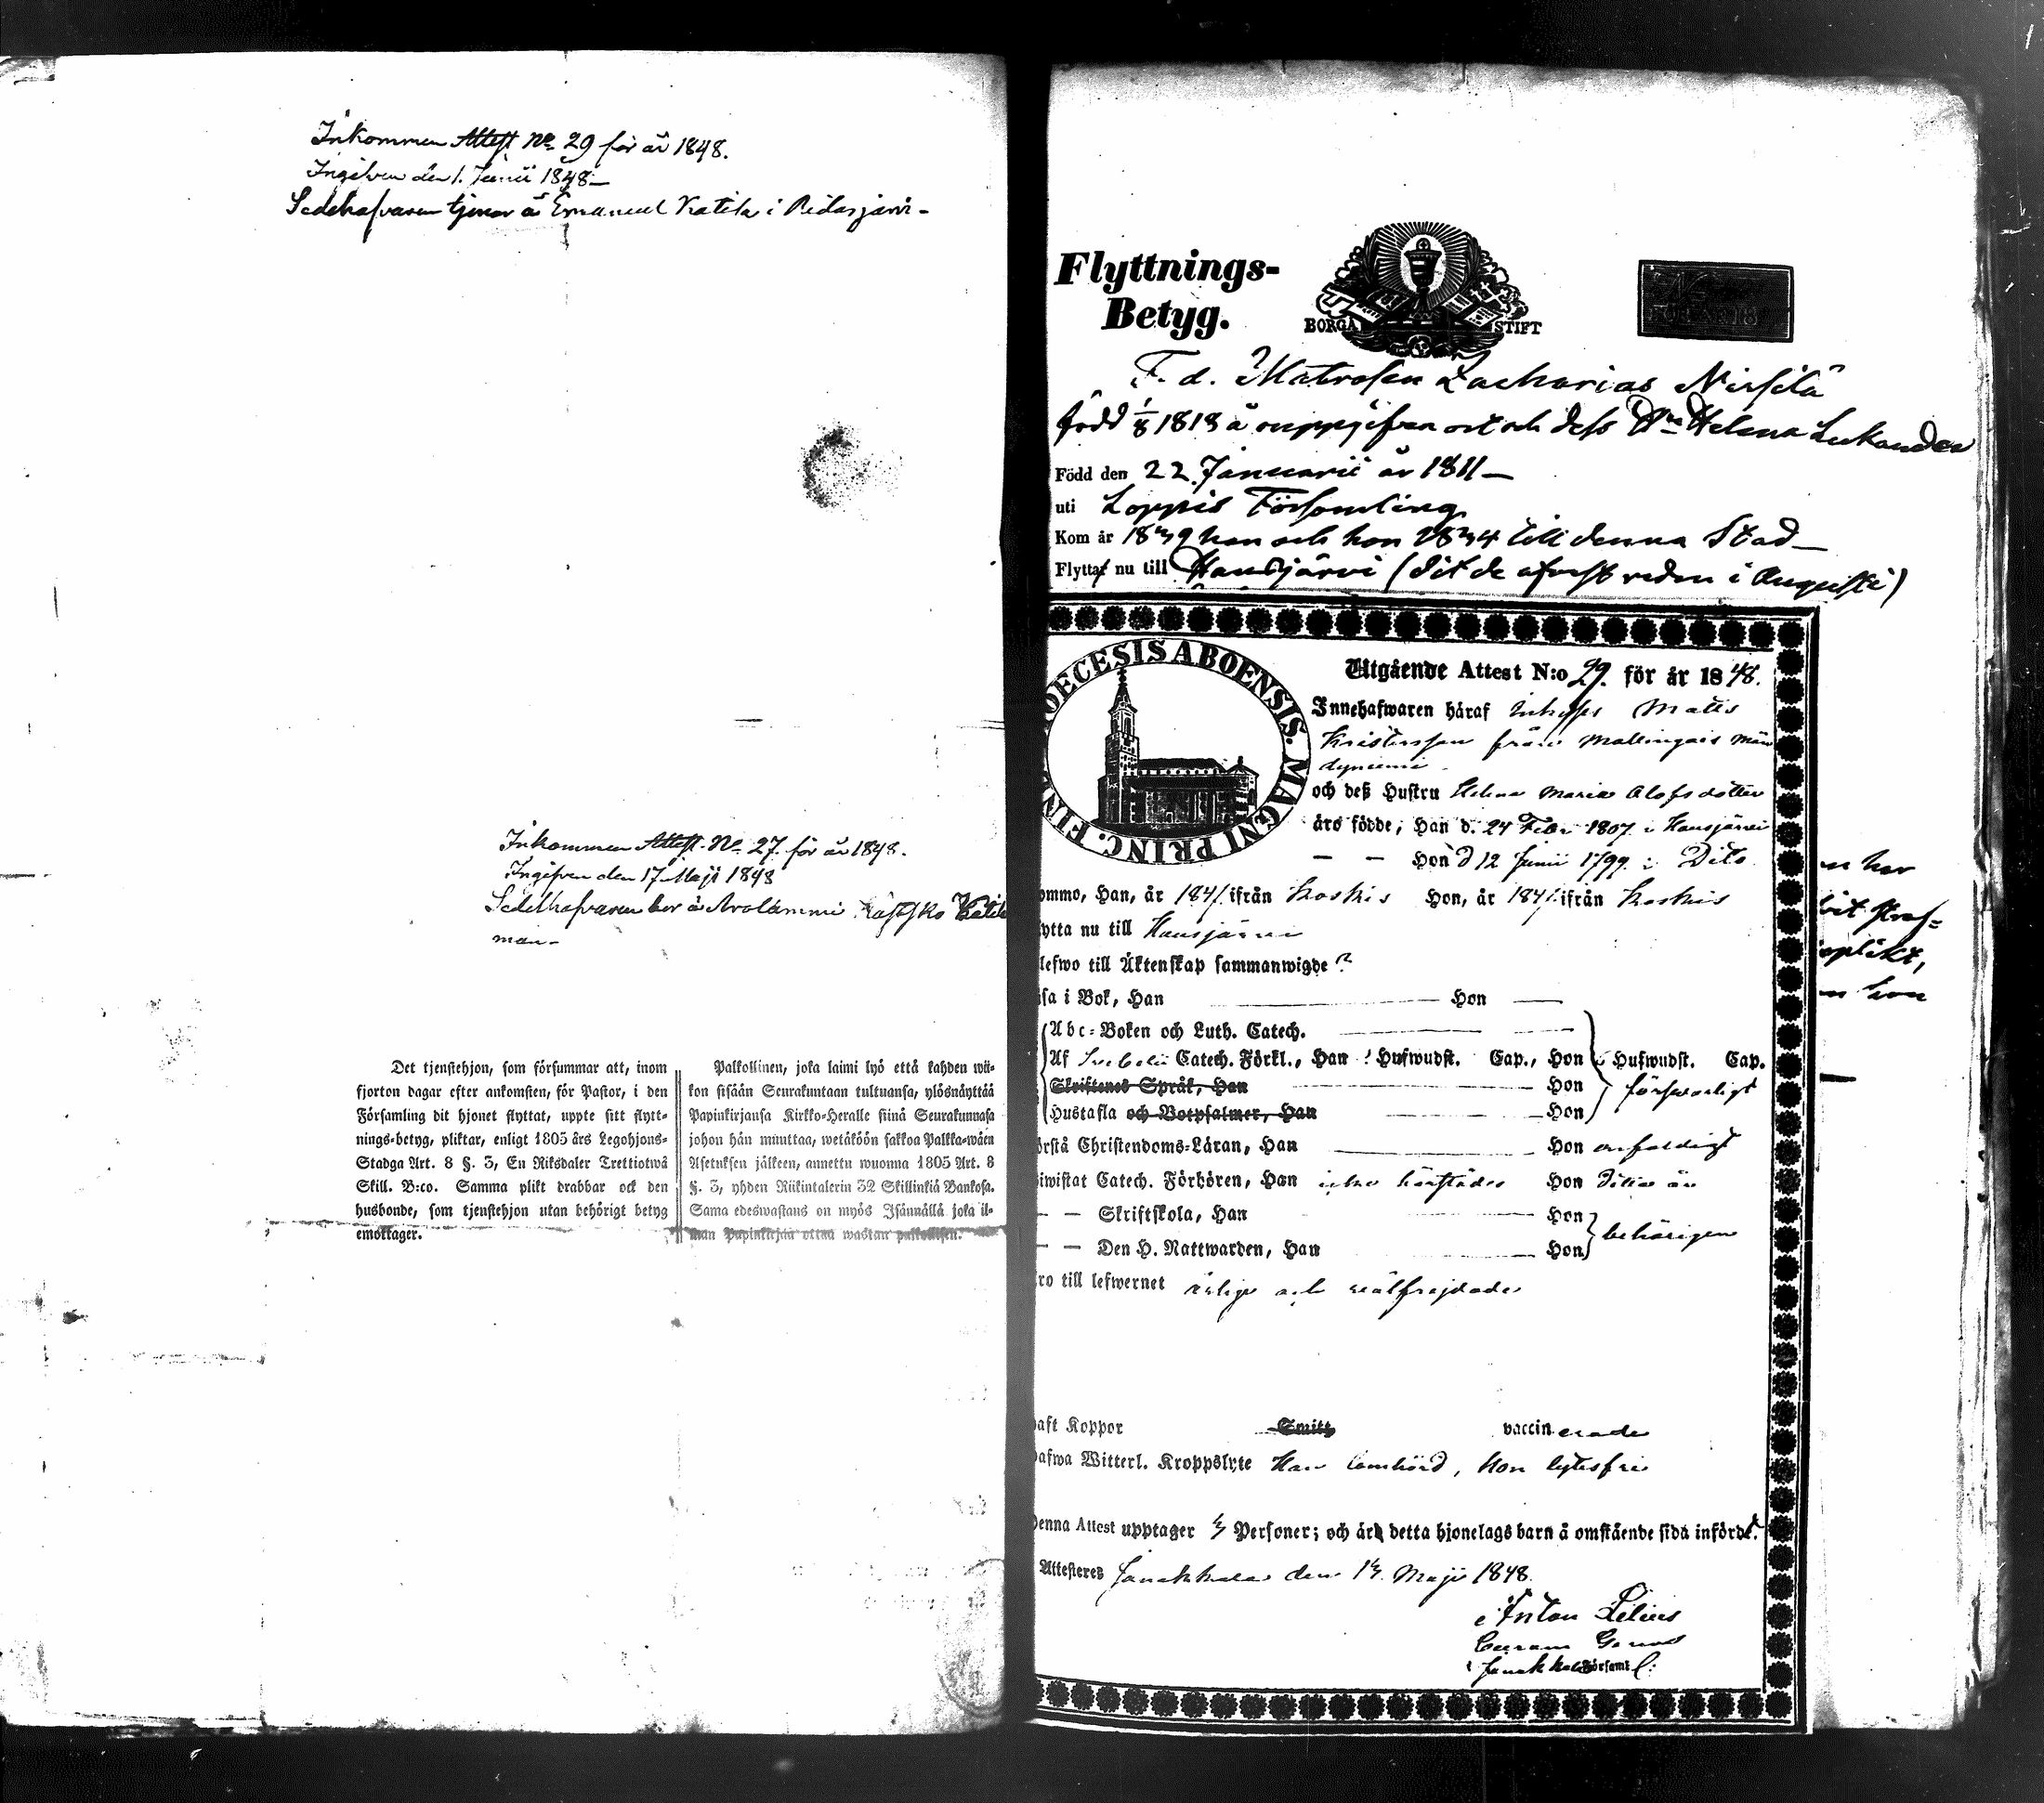 Inkommen Attest No 29 för år 1848.
Ingifven den 1. Junii 1848 –
Sedelhafvaren tjenar å Emanuel Katila i Ridasjärvi –
Inkommen Attest No 27 för år 1848.
Ingifven den 17 Maji 1848
Sedelhafvaren bor å Arolammi
män –
Det tjenstehjon, som försummar att, inom
fjorton dagar efter ankomsten, för Pastor, i den
Församling dit hjonet flyttat, uppte sitt flytt-
nings-betyg, pliktar, enligt 1805 års Legohjons-
Stadga Art. 8 §. 3, En Riksdaler Trettiotwå
Skill. B:co. Samma plikt drabbar ock den
husbonde, som tjenstehjon utan behörigt betyg
emottager.
Palkollinen, joka laimi lyö että kahden wii-
kon sisään Seurakuntaan tultuansa, ylösnäyttää
Papinkirjansa Kirkko-Heralle siinä Seurakunnasa
johon hän muuttaa, wetäköön sakkoa Palkka-wäen
Asetuksen jälkeen, annettu wuonna 1805 Art. 8
§. 3, yhden Riikintalerin 32 Skillinkiä Bankosa.
Sama edeswastaus on myös Isännällä joka il-
man Papinkirjaa ottaa wastan palkollisen.
Flyttnings-
Betyg.
BORGÅ STIFT
F. d. Matrosen Zacharias Nirfilä
född 1/8 1813 å ouppgifven ort och dess Hu Helena
Född den 22 Januarii år 1811 –
uti Loppis Församling
Kom år 1839 han och hon 1834 till denna Stad –
Flyttar nu till Hausjärvi (dit de afrest redan i Augusti)
DIOECESIS ABOENSIS. MAGNI PRINC. FINL.
Utgående Attest N:o 29. för år 1848.
Innehafwaren häraf Inhyses Matts
Kristersson från Mallingais
och deß Hustru Helena Maria Olofsdotter
äro födde, Han d. 24 Febr 1807 i Hausjärvi
– – Hon d 12 Junii 1799 i Dito
ommo, Han, år 1841 ifrån Koskis Hon, år 1841 ifrån Koskis
ytta nu till Hausjärvi
lefwo till Äktenskap sammanwigde
sa i Bok, Han Hon
Abc-Boken och Luth. Catech.
Af Svebelii Catech. Förkl., Han Hufwudst. Cap., Hon Hufwudst. Cap.
Skriftenes Språk, Han Hon försvarligt
Hustafla och Botpsalmer, Han Hon
örstå Christendoms-Läran, Han Hon enfaldigt
iwistat Catech. Förhören, Han Hon
– – Skriftskola, Han Hon
– – Den H. Nattwarden, Han Hon behörigen
ro till lefwernet ärlige och välfrejdade
aft Koppor Smitt vaccinerade
afwa Witterl. Kroppslyte Han lomhörd, Hon lytesfri
Denna Attest upptager 3 Personer; och äro detta hjonelags barn å omstående sida införde.
Attesteres Janakkala den 13. Maji 1848.
Anton Lilius
Janakkala Församl: